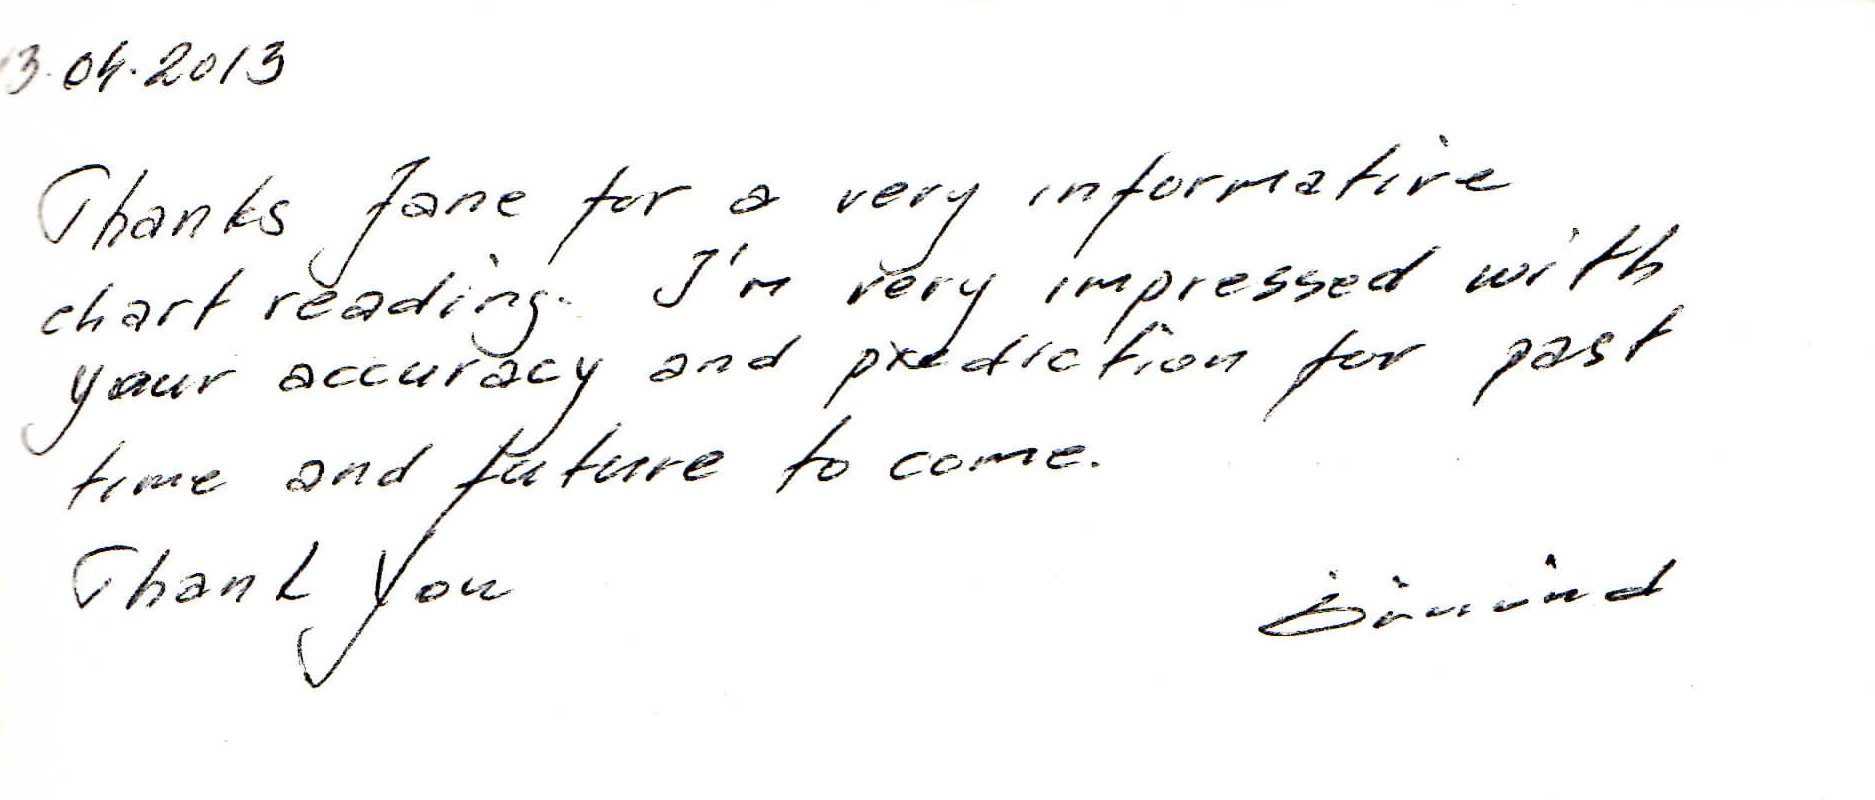 13.04.2013
Thanks Jane for a very informative
chart reading. I'm very impressed with
your accuracy and prediction for past
time and future to come.
Thank You